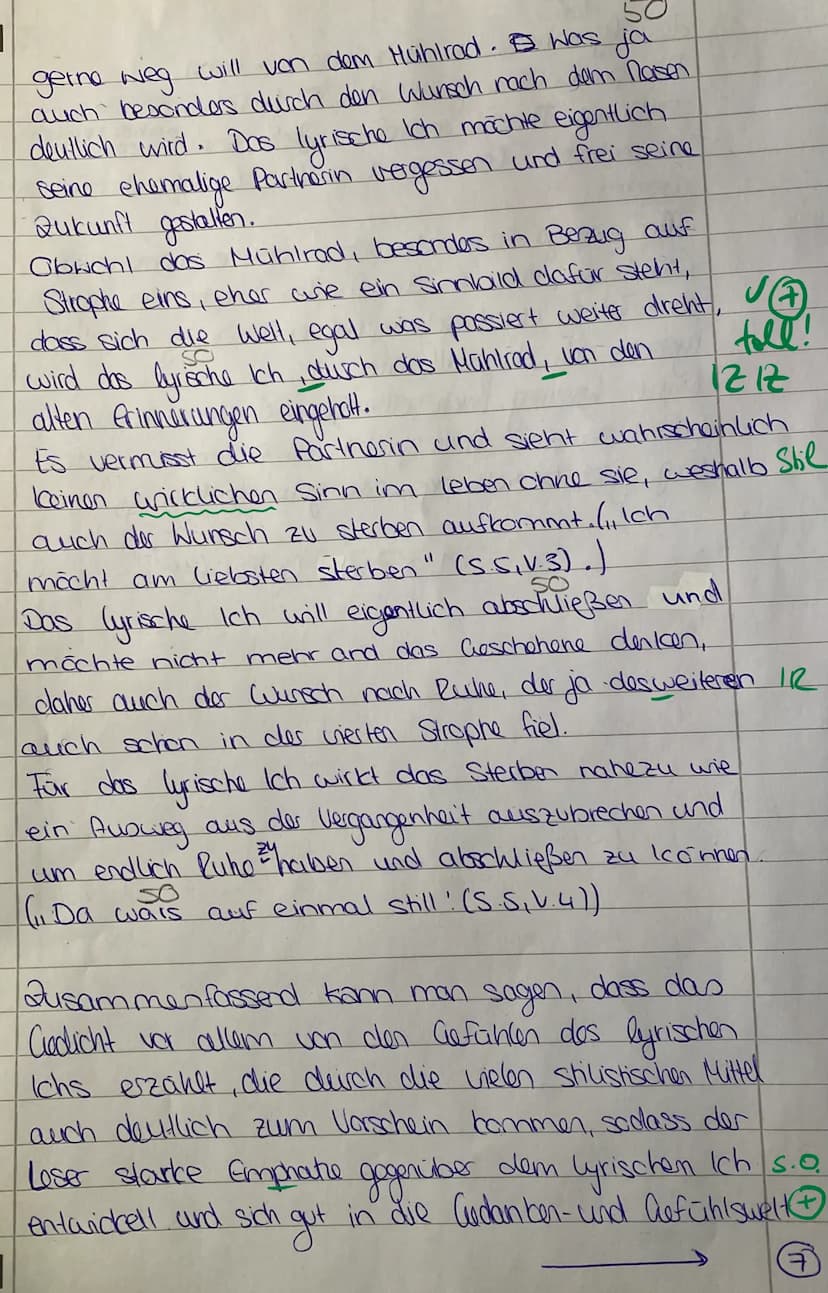 50
gerne weg will von dem Mühlrad. Was ja
auch besonders durch den Wunsch nach dem Rasen
deutlich wird. Das lyrische Ich möchte eigentlich
seine ehemalige Partnerin vergessen und frei seine
Zukunft gestalten.
Obwohl das Mühlrad, besonders in Bezug auf
Strophe eins, eher wie ein Sinnbild dafür steht,
dass sich die Welt, egal was passiert weiter dreht, ✓ +
toll!
50
wird das lyrische Ich, durch das Mühlrad, von den IZ IZ
alten Erinnerungen eingeholt.
Es vermisst die Partnerin und sieht wahrscheinlich
keinen wirklichen Sinn im Leben ohne sie, weshalb Stil
auch der Wunsch zu sterben aufkommt. („Ich
möcht am liebsten sterben" (S.5, V.3).)
50
Das lyrische Ich will eigentlich abschließen und
möchte nicht mehr and das Geschehene denken,
daher auch der Wunsch nach Ruhe, der ja desweiteren IR
auch schon in der vierten Strophe fiel.
Für das lyrische Ich wirkt das Sterben nahezu wie
ein Ausweg aus der Vergangenheit auszubrechen und
um endlich Ruhe zu haben und abschließen zu können.
50
(„Da wärs auf einmal still" (S.5, V.4))
Zusammenfassend kann man sagen, dass das
Gedicht vor allem von den Gefühlen des lyrischen
Ichs erzählt, die durch die vielen stilistischen Mittel
auch deutlich zum Vorschein kommen, sodass der
Leser starke Emphatie gegenüber dem lyrischen Ich s.o.
entwickelt und sich gut in die Gedanken- und Gefühlswelt +
7